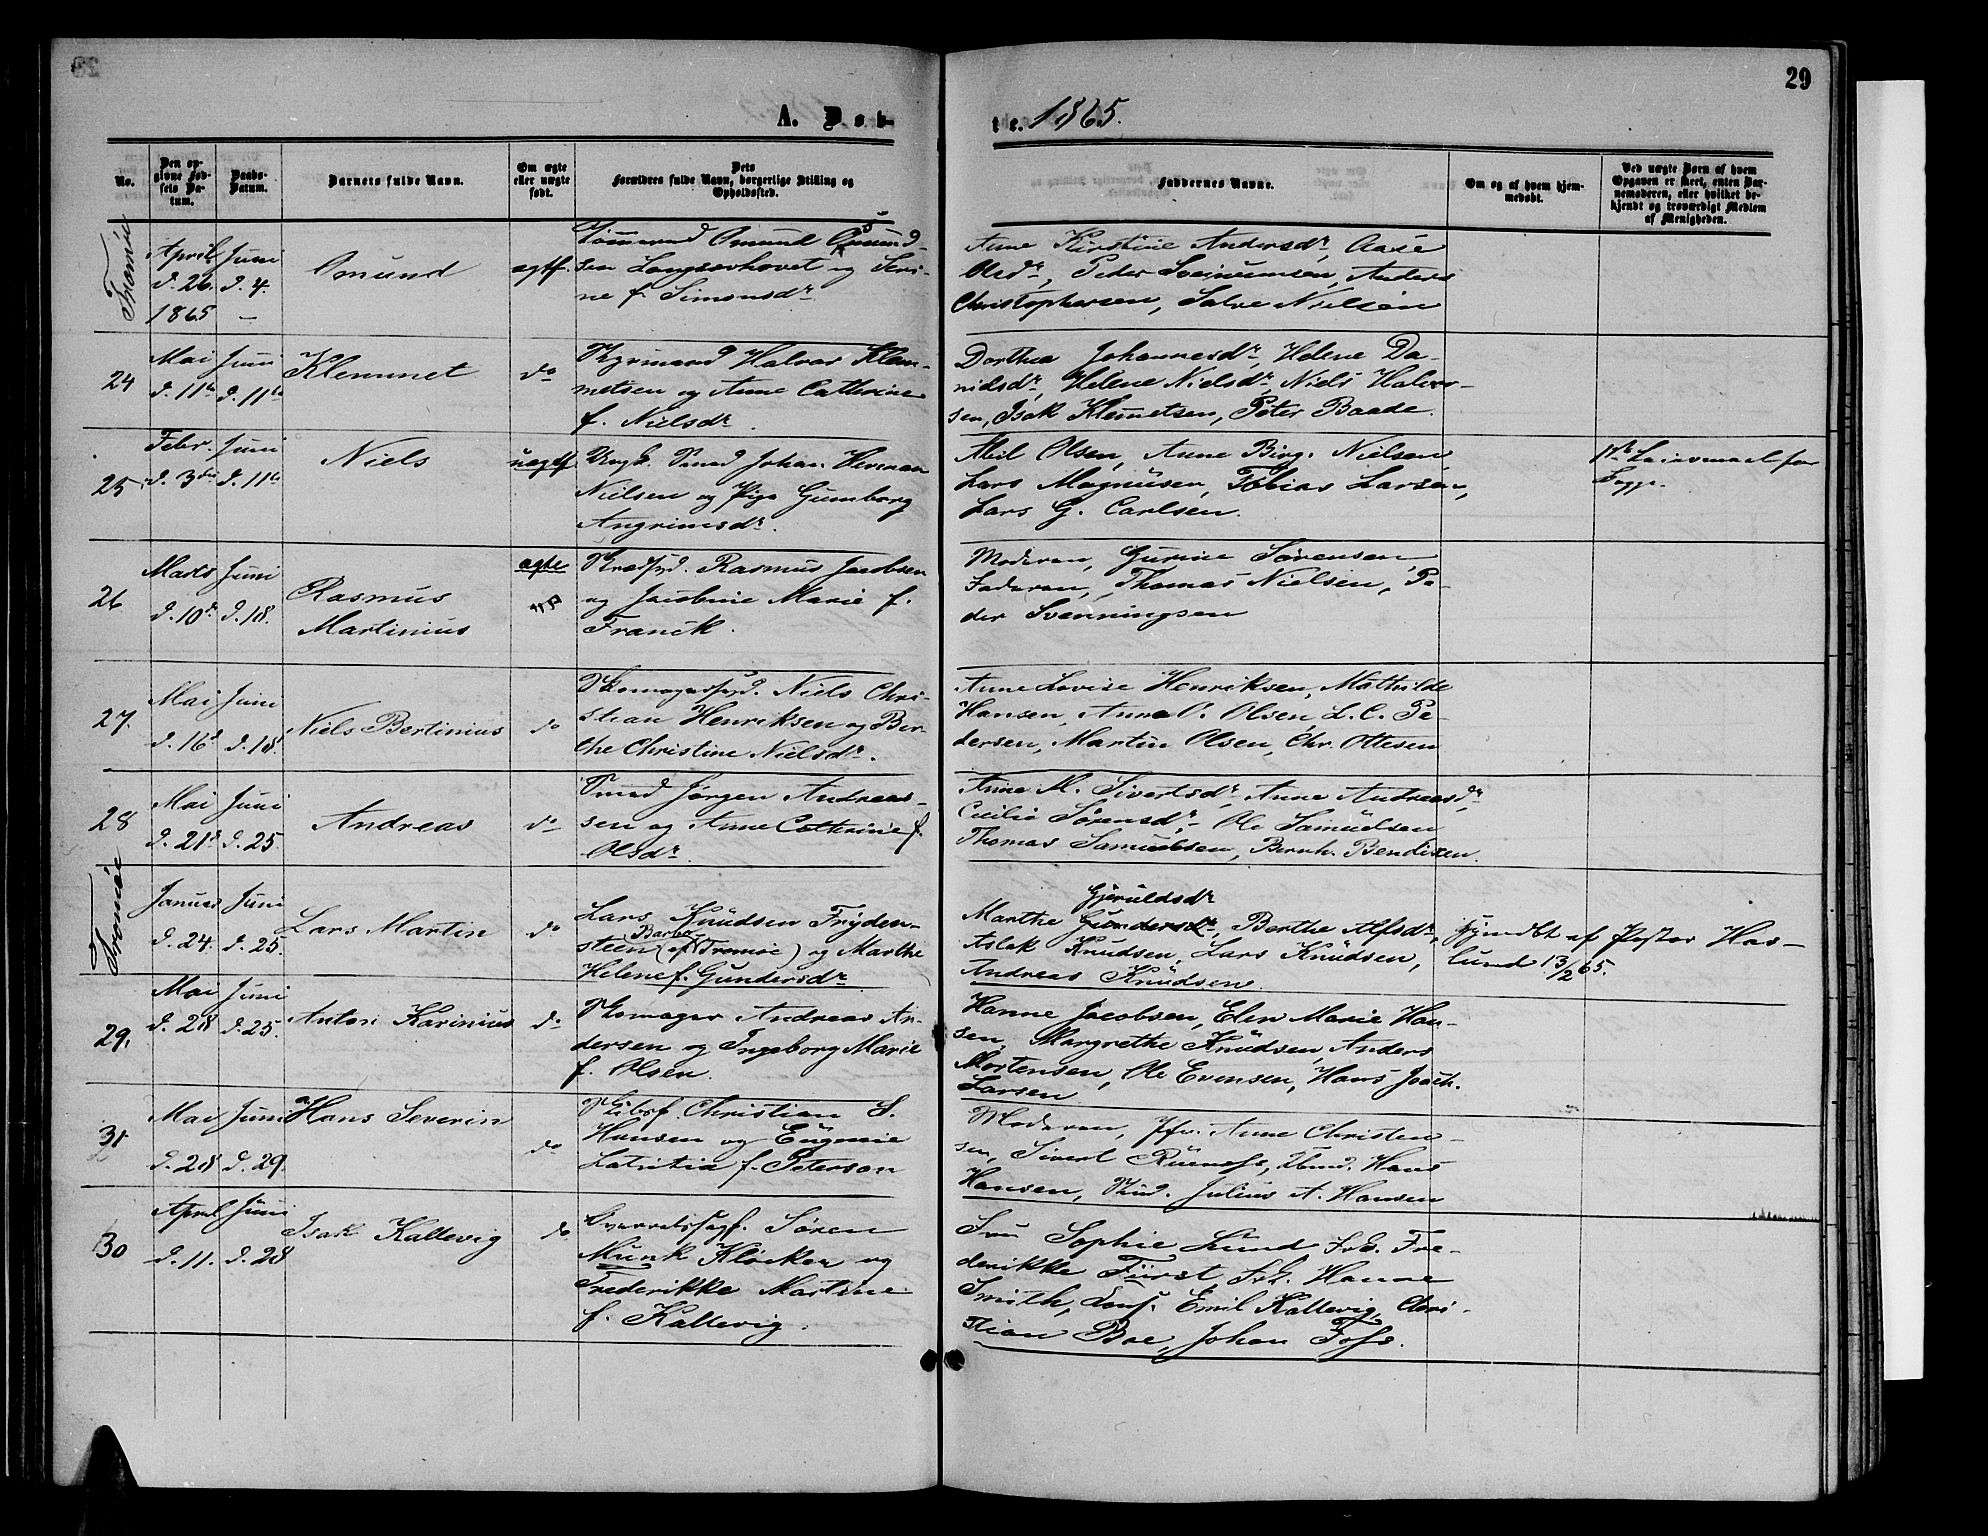 29
A. Døb-
te. 1865.
No.
Den op-
givne Fød-
sels Da-
tum.
Daabs-
Datum.
Barnets fulde Navn.
Om ægte
eller uægte
født.
Dets
Forældres fulde Navn, borgerlige Stilling og
Opholdssted.
Faddernes Navne.
Om og af hvem hjem-
medøbt.
Ved uægte Børn af hvem
Opgaven er skeet, enten Bar-
nemoderen, eller hvilket be-
kjendt og troværdigt Medlem
af Menigheden.
Tromöe
April
d. 26.
1865
Juni
d. 4.
—
Omund
ægtf.
Tømmermd Omund Omund-
sen Langsævhovet og Seri-
ne f. Simonsdr
Anne Kirstine Andersdr, Aase
Olsdr, Peder Sveinumsen, Anders
Christophersen, Salve Nielsen
24
Mai
d. 11te
Juni
d. 11te
Klemmet
do
Halvor Klem-
metsen og Anne Cathrine
f. Nielsdr.
Dorthea Johannesdr, Helene Da-
nidsdr, Helene Nielsdr, Niels Halvor-
sen, Isak Klemetsen, Peter Baade.
25
Febr.
d. 3die
Juni
d. 11te
Niels
uægtf.
Ungk. Smed Johan Herman
Nielsen og Pige Gumborg
Angrimsdr.
Abil Olsen, Anne Birg. Nielsen
Lars Magnüsen, Tobias Larsen,
Lars G. Carlsen.
1ste Leiermaal for
Begge.
26
Marts
d. 10de
Juni
d. 18.
Rasmus
Martinius
ægte
Rasmus Jacobsen
og Jacobine Marie f.
Franck.
Moderen, Gurine Sørensen
Faderen, Thomas Nielsen, Pe-
der Svenningsen
27.
Mai
d. 16d
Juni
d. 18.
Niels Bertinius
do
Skomagersv. Niels Chri-
stian Henriksen og Ber-
the Christine Nielsdr.
Anne Lovise Henriksen, Mathilde
Hansen, Anne O. Olsen, L. C. Pe-
dersen, Martin Olsen, Chr. Ottesen
28
Mai
d. 21d
Juni
d. 25.
Andreas
do
Smed Jørgen Andreas-
sen og Anne Cathrine f.
Olsdr.
Anne M. Sivertsdr, Anne Andreasdr,
Cicilie Sørensdr, Ole Samüelsen
Thomas Samuelsen, Bernh. Bendixen.
Tromöe
Januar
d. 24.
Juni
d. 25.
Lars Martin
do
Lars Knüdsen Fryden-
steen (af Tromöe) og Marthe
Helene f. Gundersdr
Gjeruldsdr
Marthe Gundersdr, Berthe Alfsdr,
Aslak Knudsen, Lars Knüdsen,
Andreas Knüdsen.
hjmdbt af Pastor Has-
lund 13/2 65.
29.
Mai
d. 28
Juni
d. 25.
Anton Karinius
do
Skomager Andreas An-
dersen og Ingeborg Marie
f. Olsen.
Hanne Jacobsen, Elen Marie Han-
sen, Margrethe Knüdsen, Anders
Mortensen, Ole Evensen, Hans Joach.
Larsen
31
Mai
d. 28
Juni
d. 29.
Hans Severin
do
Skibsf. Christian S.
Hansen og Eügenie
Latitia f. Peterson
Moderen, Jfr. Anne Christen-
sen, Sivert Hans
Hansen, Stud. Julius A. Hansen
30
April
d. 11.
Juni
d. 28
Isak Kallevig
do
Overretssagf. Søren
Munk Kløcker og
Frederikke Martine
f. Kallevig.
Fru Sophie Lund Frk. Fre-
derikke Fürst, Frk. Hanne
Smith, Cons. Emil Kallevig, Chri-
stian Boe, Johan Foss.